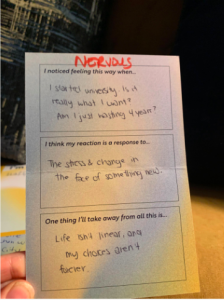 NERVOUS
I noticed feeling this way when...
I started university. Is it
really what I want?
Am I just wasting 4 years?
I think my reaction is a response to...
The stress & change in
the face of something new.
One thing I'll take away from all this is...
Life isn't linear, and
my choices aren't
forever.